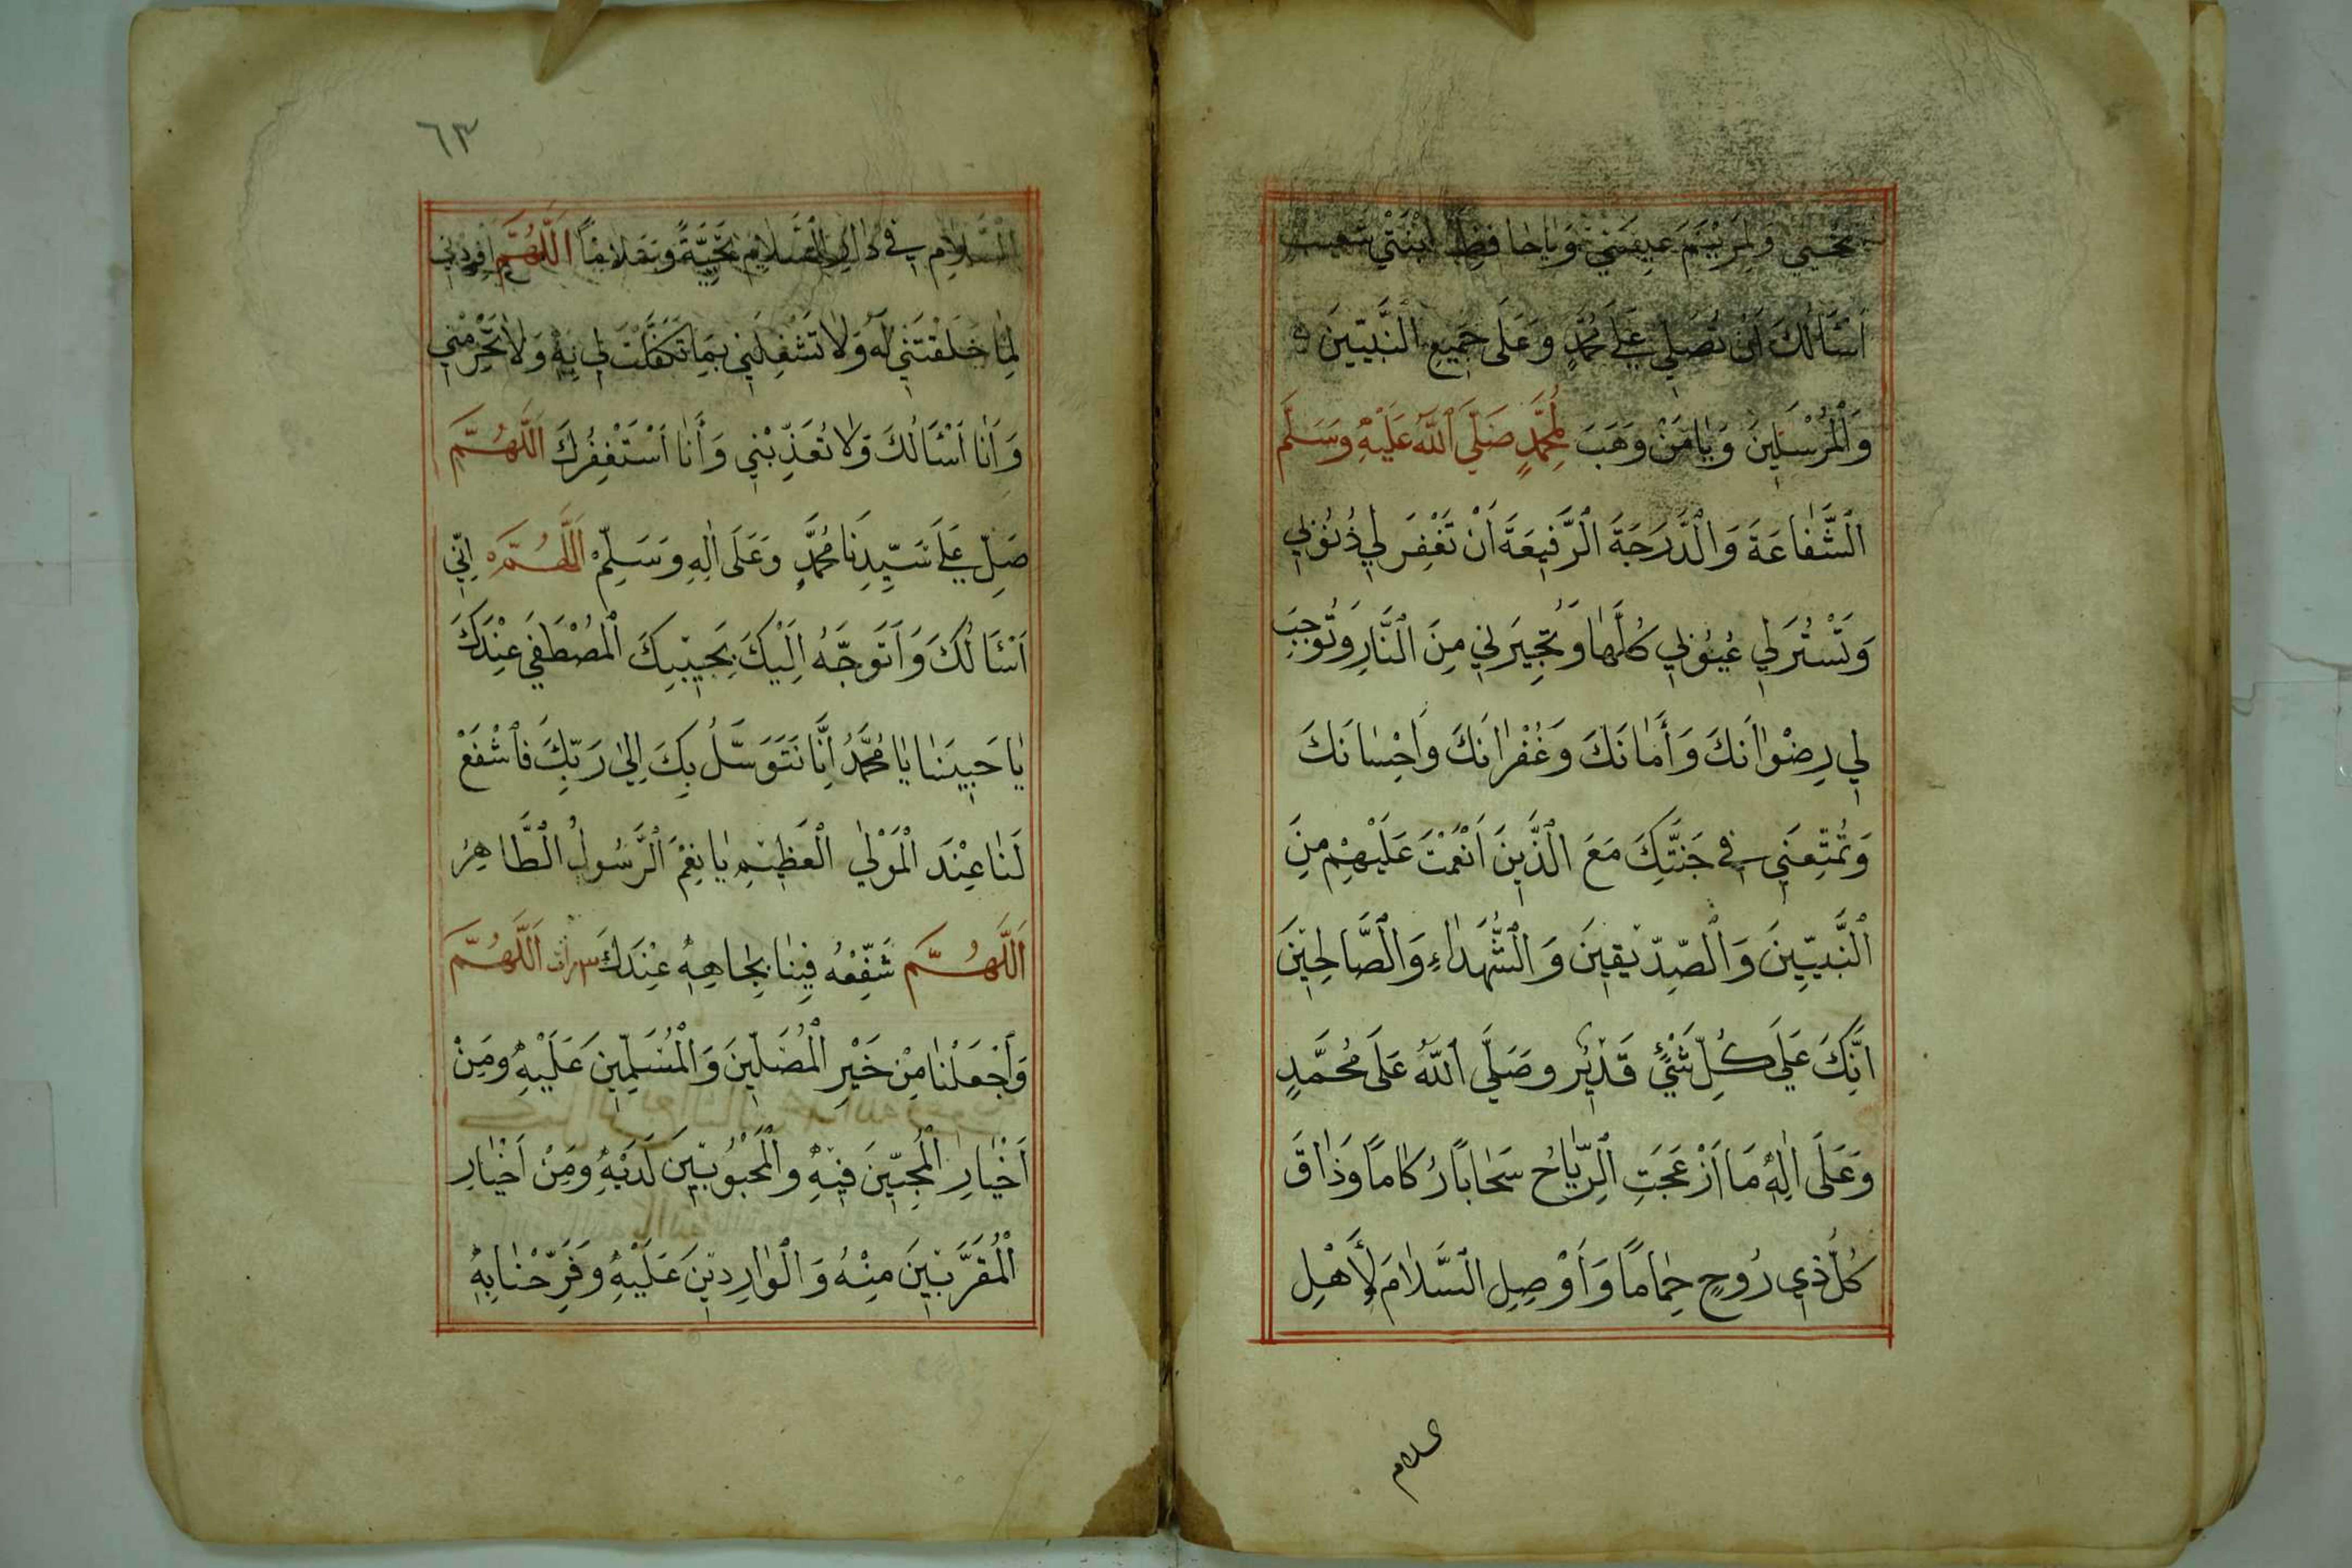 يَحْيٰي وَلِمَرْيَمَ عِيسٰي وَيَا حَافِظَ ابْنَتَيْ شُعَيْبٍ
اَسْئَالُكَ اَنْ تُصَلِّيَ عَلٰي مُحَمَّدٍ وَعَلَى جَمِيعِ النَّبِيّينَ
وَالْمُرْسَلِينَ وَيَا مَنْ وَهَبَ لِمُحَمَّدٍ صَلَّي اللهُ عَلَيْهِ وَسَلَّمَ
الشَّفَاعَةَ وَالدَّرَجَةَ الرَّفِيعَةَ اَنْ تَغْفِرَ لِي ذُنُوبِي
وَتَسْتُرَ لِي عُيُوبِي كُلَّهَا وَتُجِيرَنِي مِنَ النَّارِ وَتُوجِبَ
لِي رِضْوَانَكَ وَأَمَانَكَ وَغُفْرَانَكَ وَاحِْسَانَكَ
وَتُمَتِّعَنِي فِي جَنَّتِكَ مَعَ الَّذِينَ اَنْعَمْتَ عَلَيْهِمْ مِنَ
النَّبِيّينَ وَالصِّدِّيقِينَ وَالشُّهَدَاءِ وَالصَّالِحِينَ
اِنَّكَ عَلَي كُلِّ شَيْئٍ قَدِيرٌ وصَلَّي اللهُ عَلَى مُحَمَّدٍ
وَعَلَى اٰلِهِ مَا اَزْعَجَتِ الرِّيَاحُ سَحَابًا رُكَامًا وَذَاقَ
كُلُّ ذِي رُوحٍ حِمَامًا وَاَوْصِلِ السَّلَامَ لِأَهْلِ
السلام
٦٣
السَّلَامِ فِي دَارِ السَّلَامِ تَحِيَّةً وَسَلَامًا اَللّٰهُمَّ اَفْرِدْنِي
لِمَا خَلَقْتَنِي لَهُ وَلَا تَشْغِلْنِي بِمَا تَكَفَّلْتَ لِي بِهِ وَلَا تَحْرِمْنِي
وَاَنَا اَسْئَالُكَ وَلَا تُعَذِّبْنِي وَأَنَا اَسْتَغْفِرُكَ اَللّٰهُمَّ
صَلِّ عَلَي سَيِّدِنَا مُحَمَّدٍ وَعَلَى اٰلِهِ وَسَلِّمْ اَللّٰهُمَّ اِنِّي
اَسْئَالُكَ وَاَتَوَجَّهُ اِلَيْكَ بِحَبِيبِكَ الْمُصْطَفَي عِنْدَكَ
يَا حَبِيبَنَا يَا مُحَمَّدُ اِنَّا نَتَوَسَّلُ بِكَ اِلٰي رَبِّكَ فَاشْفَعْ
لَنَا عِنْدَ الْمَوْلٰي الْعَظِيمِ يَا نِعْمَ الرَّسُولُ الطَّاهِرُ
اَللّٰهُمَّ شَفِّعْهُ فِينَا بِجَاهِهِ عِنْدَكَ ٣ مرات اَللّٰهُمَّ
وَاجْعَلْنَا مِنْ خَيْرِ الْمُصَلِّينَ وَالْمُسَلِّمِينَ عَلَيْهِ وَمِنْ
اَخْيَارِ الْمُحِبِّينَ فِيهِ وَالْمَحْبُوبِينَ لَدَيْهِ وَمِنْ اَخْيَارِ
الْمُقَرَّبِينَ مِنْهُ وَالْوَارِدِينَ عَلَيْهِ وَفَرِّحْنَا بِهِ